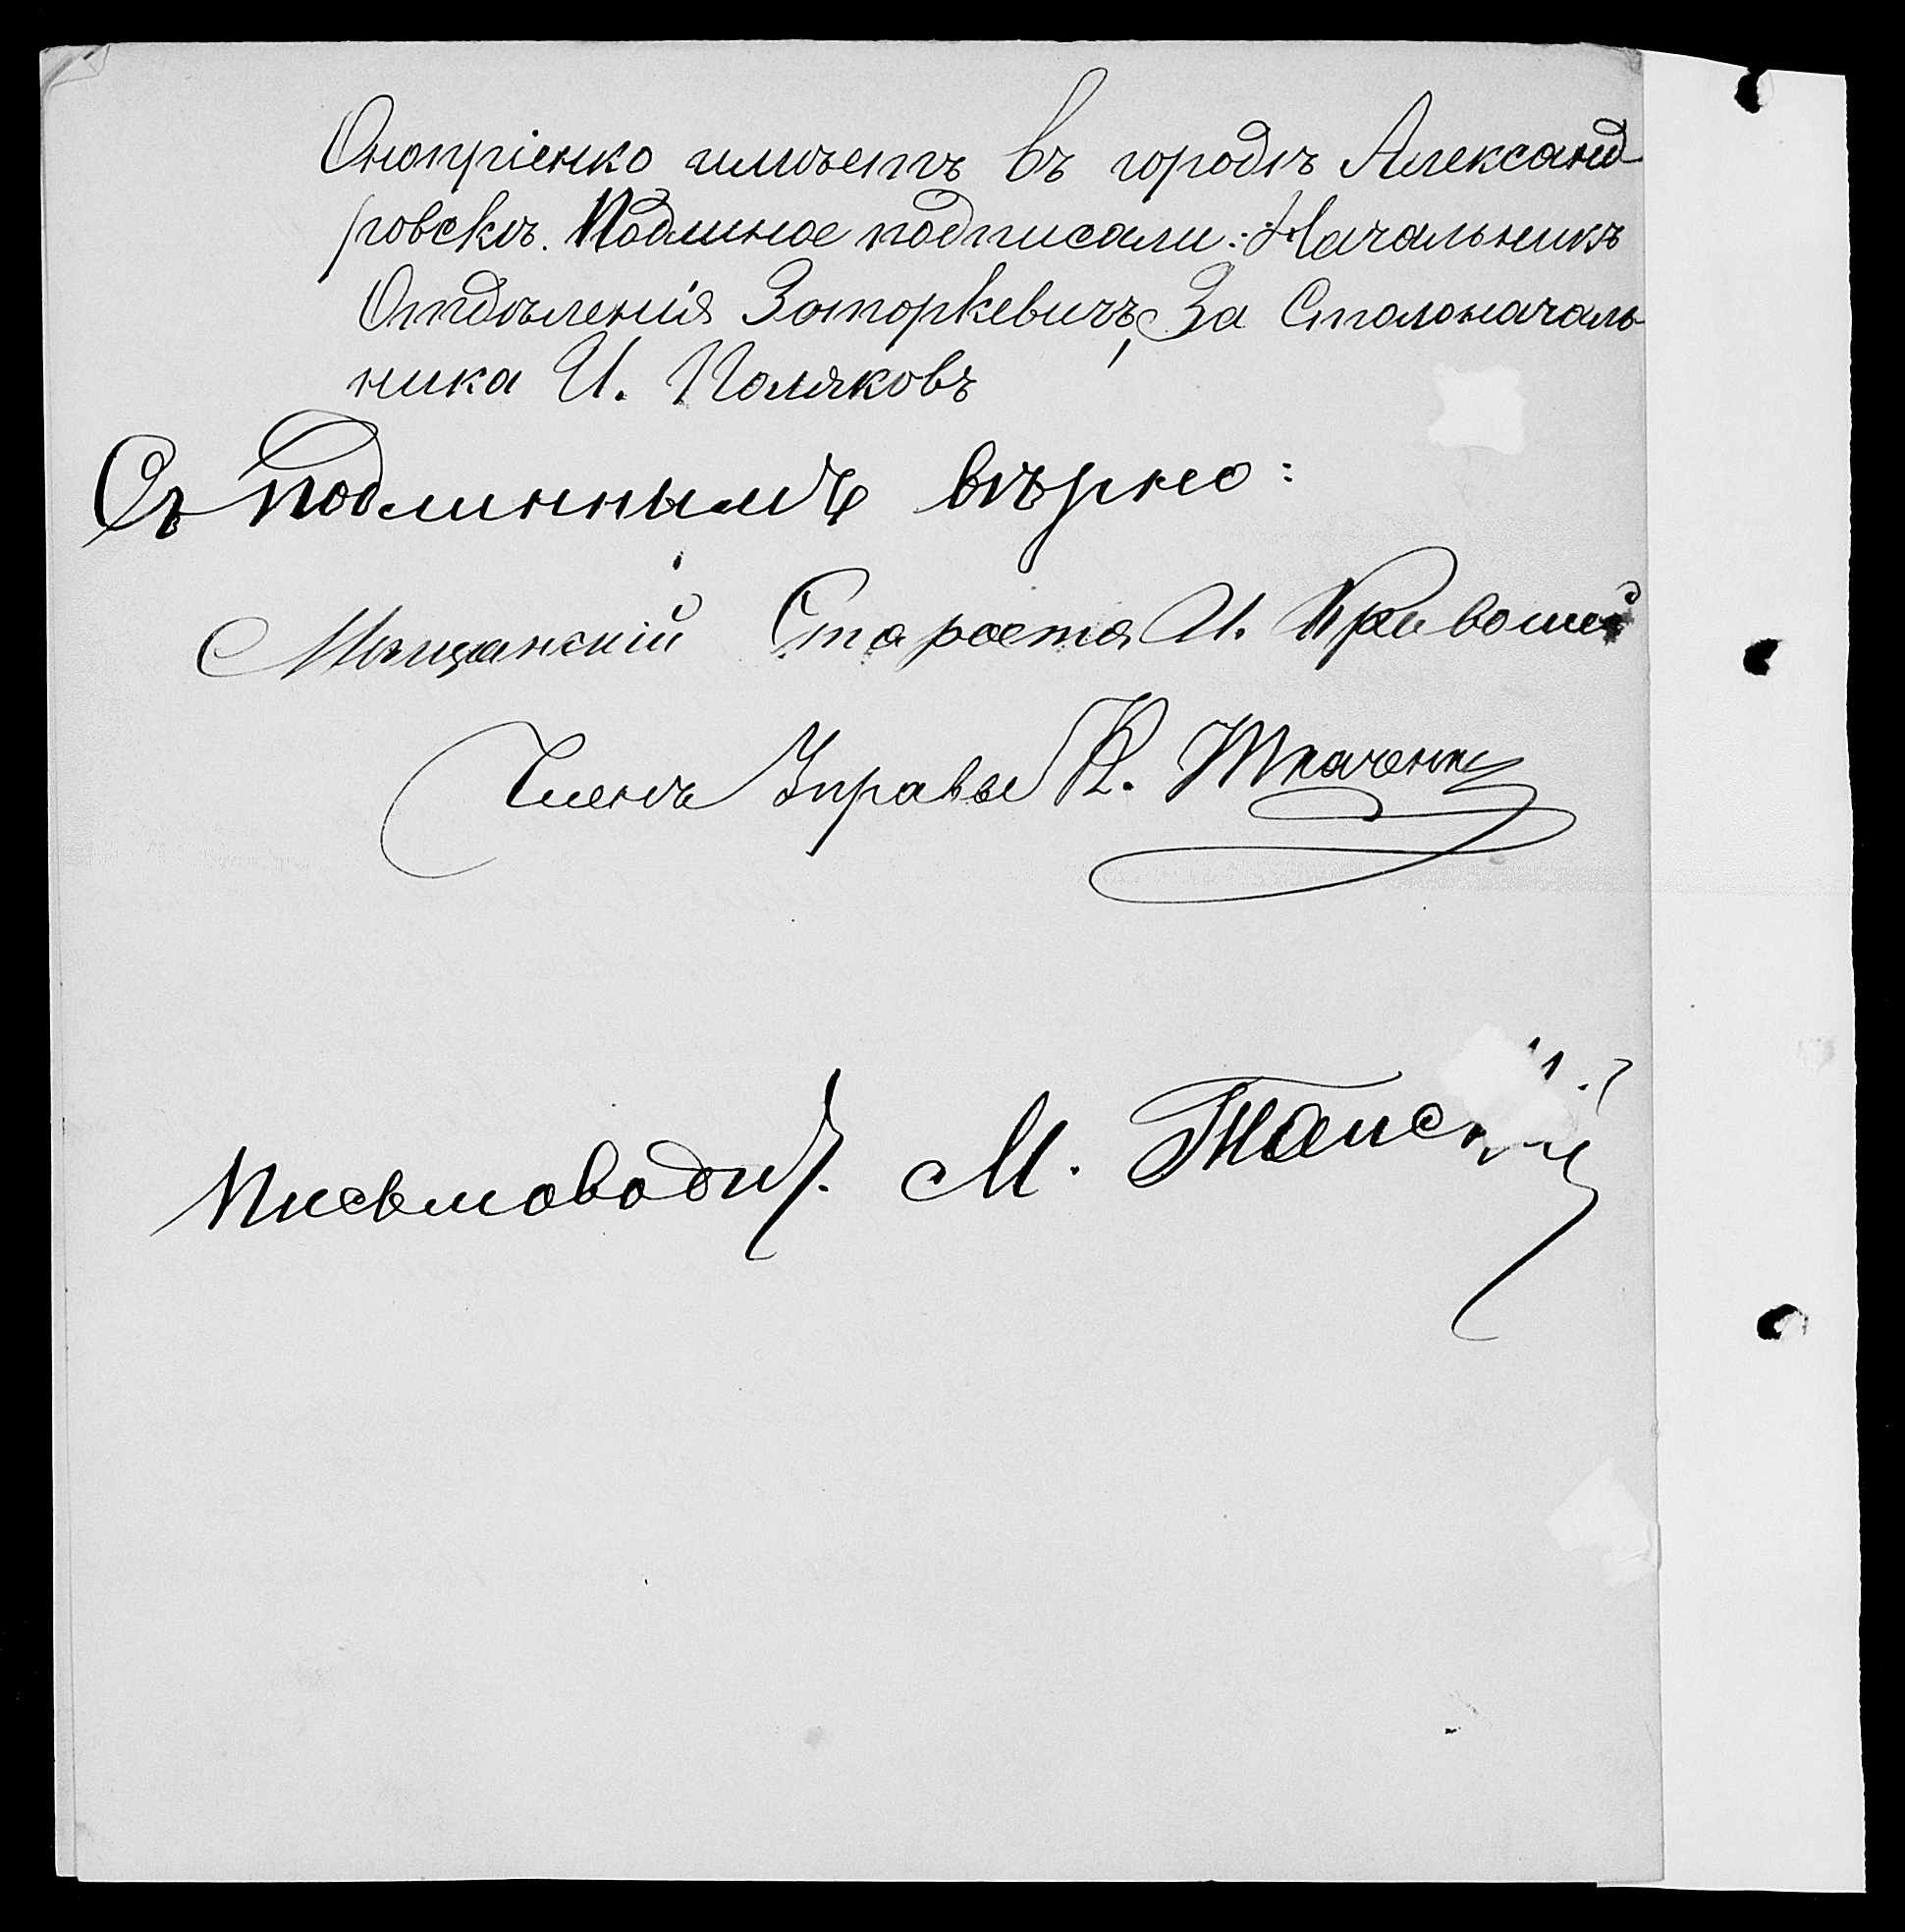 Онопріенко имѣетъ въ городѣ Александ
ровскѣ. Подлиное подписали: Начальникъ
Отдѣленія Заторкевичъ, За Столоначаль
ника И. Поляковъ
Съ подлиннымъ вѣрно:
Мѣщанскій Староста И. Кривошей
Членъ Управы К. Ткаченко
Письмоводит. М.